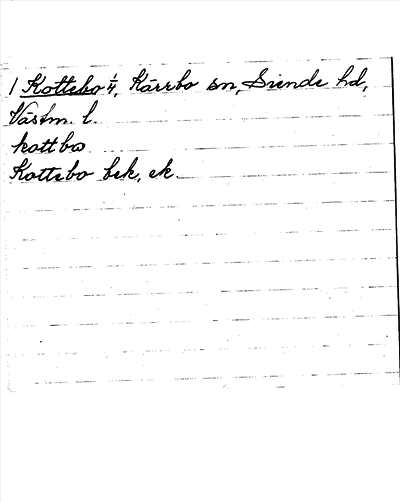 1 Kottebo 1/4, Kärrbo sn, Siende hd,
Västm. l.
kottbo
Kottebo bek, ek.